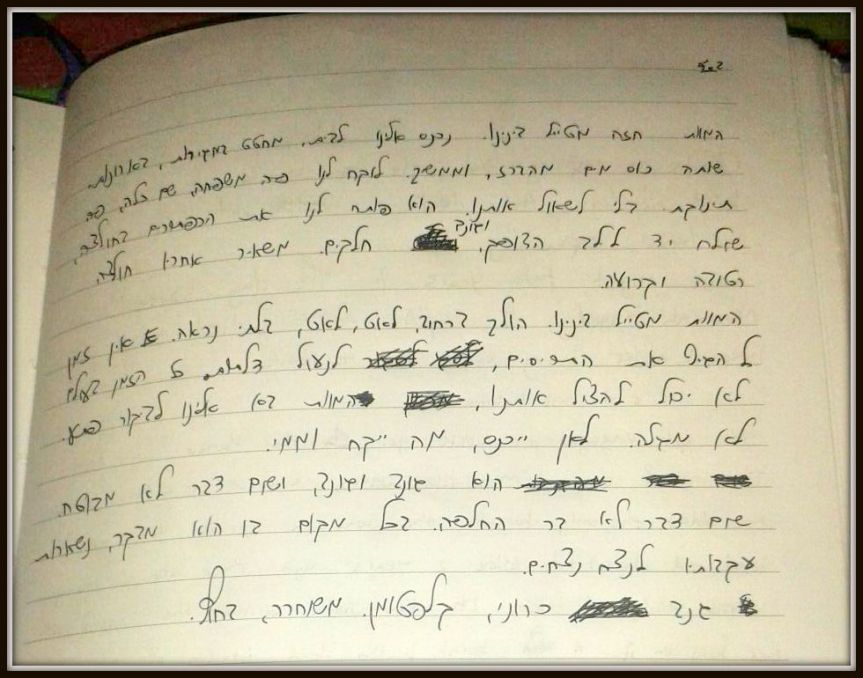 בס"ד
המוות חזה מטייל בינינו. נכנס אלינו לבית, מחטט במגירות, בארונות.
שותה כוס מים מהברז, וממשיך. לוקח לנו פה משפחה, שם כלה, פה
תינוקת. בלי לשאול אותנו. הוא פותח לנו את הכפתורים בחולצה,
שולח יד ללב הצופן, וגונב חלקים. משאיר אחריו חולצה
רטובה וקרועה.
המוות מטייל בינינו. הולך ברחוב, לאט, לאט, בלתי נראה. אין זמן
להגיף את התריסים, לנעול דלתות. כל הזמן בעולם
לא יכול להציל אותנו, המוות בא אלינו לביקור פתע.
לא מגלה לאן ייכנס, מה ייקח וממי.
הוא גונב וגונב, ושום דבר לא מבוטח.
שום דבר לא בר החלפה. בכל מקום בו הוא מבקר, נשארות
עקבותיו לנצח נצחים.
גנב כרוני, קלפטומן. משוחרר, בחוץ.